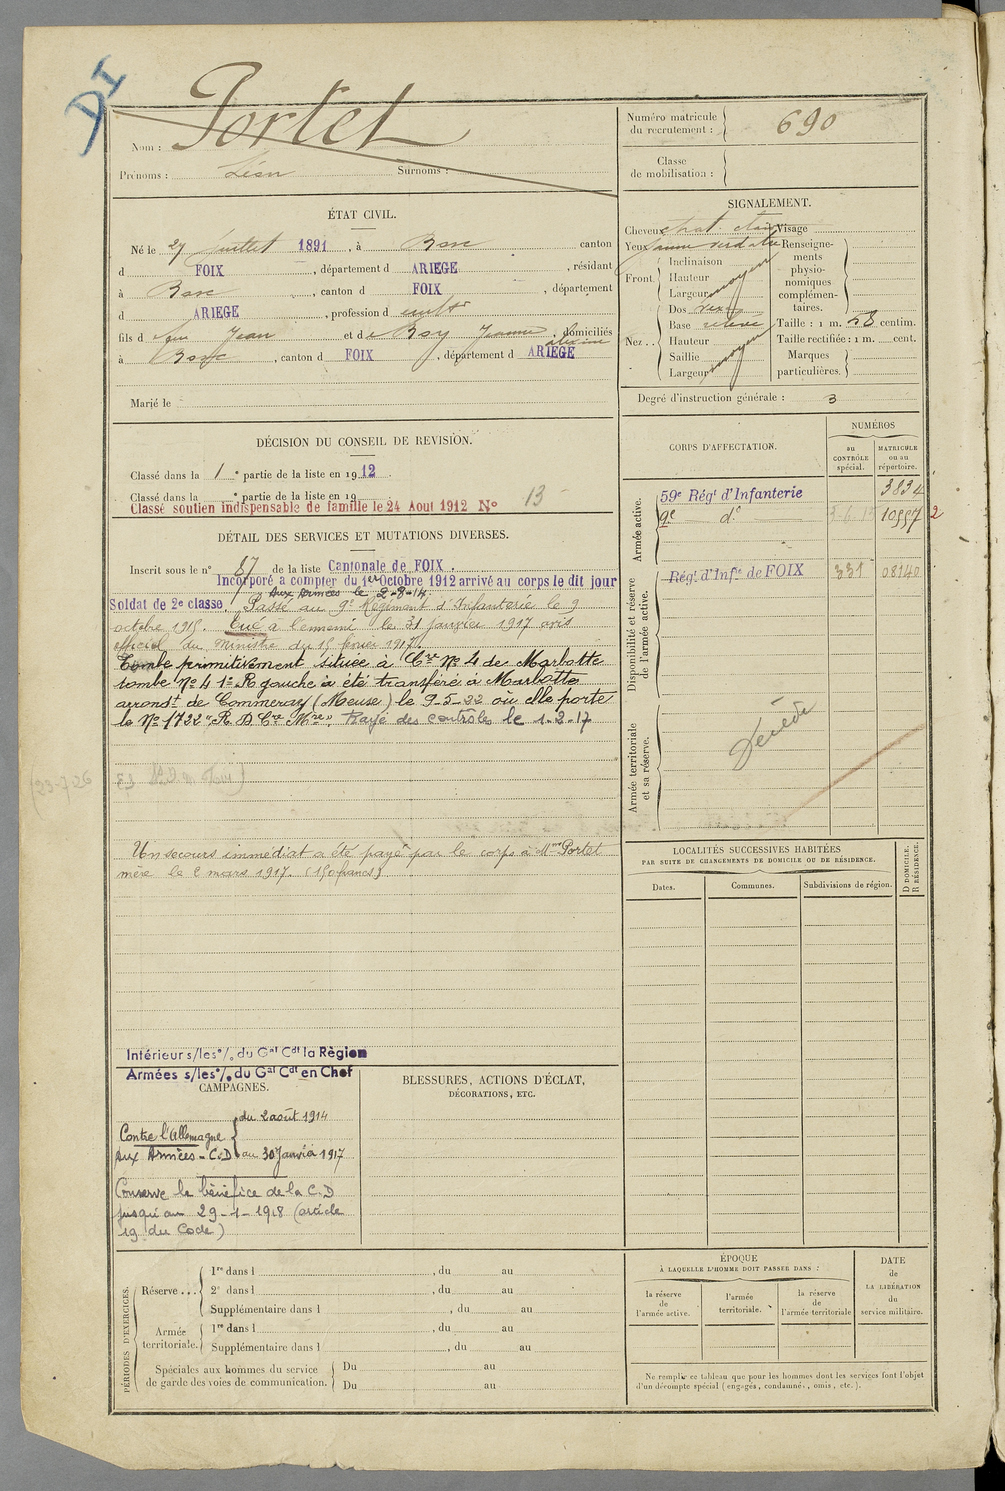 DI
Nom : Portet
Prénoms : Léon Surnoms :
Numéro matricule
du recrutement : 690
Classe
de mobilisation :
ÉTAT CIVIL.
Né le 27 juillet 1891, à Bosc canton
d FOIX, département d ARIEGE, résidant
à Bosc, canton d FOIX, département
d ARIEGE, profession d cultr
fils d feu Jean et de Roy Jeanne, domiciliés
à Bosc, canton d FOIX, département d ARIEGE
Marié le
SIGNALEMENT.
Cheveux chat. clair Visage
Yeux jaune verdatre Renseigne-
ments
physio-
nomiques
complémen-
taires.
Front. Inclinaison
Hauteur
Largeur moyen
Nez.. Dos rex
Base relevé
Hauteur
Saillie
Largeur moyen
Taille : 1 m. 58 centim.
Taille rectifiée : 1 m. cent.
Marques
particulières.
Degré d'instruction générale : 3
DÉCISION DU CONSEIL DE REVISION.
Classé dans la 1e partie de la liste en 1912.
Classé dans la e partie de la liste en 19
Classé soutien indispensable de famille le 24 Aout 1912 No 13
DÉTAIL DES SERVICES ET MUTATIONS DIVERSES.
Inscrit sous le n° 87 de la liste Cantonale de FOIX.
Incorporé a compter du 1er Octobre 1912 arrivé au corps le dit jour
Aux Armées le 2-8-14
Soldat de 2e classe. Passé au 9e Régiment d'Infanterie le 9
octobre 1915. Tué à l'ennemi le 31 janvier 1917 avis
officiel du Ministre du 15 février 1917.
Tombe primitivement située à Cre No 4 de Marbotte
tombe No 4 1e R gauche a été transféré à Marbotte
arrondt de Commercy (Meuse) le 9-5-22 où elle porte
le No 1722 "R D Cre Mre". Rayé des contrôles le 1-2-17
(23-7-26
Un secours immédiat a été payé par le corps à Mme Portet
mère le 2 mars 1917. (150 francs)
CORPS D'AFFECTATION.
NUMÉROS
au
CONTRÔLE
spécial.
MATRICULE
ou au
répertoire.
Armée active.
59e Régt d'Infanterie 3834
9e do 10557 2
Disponibilité et réserve
de l'armée active.
Régt d'Infie de FOIX 331 08140
Armée territoriale
et sa réserve.
Décédé
LOCALITÉS SUCCESSIVES HABITÉES
PAR SUITE DE CHANGEMENTS DE DOMICILE OU DE RÉSIDENCE.
Dates.
Communes.
Subdivisions de région.
D DOMICILE.
R RÉSIDENCE.
Intérieur s/les o/. du Gal Cdt la Règion
Armées s/les o/. du Gal Cdt en Chef
CAMPAGNES.
Contre l'Allemagne du 2 août 1914
Aux Armées - C.D au 30 Janvier 1917
Conserve le bénéfice de la C.D
jusqu'au 29-1-1918 (article
19 du Code)
BLESSURES, ACTIONS D'ÉCLAT,
DÉCORATIONS, ETC.
PÉRIODES D'EXERCICES.
Réserve... 1re dans l , du au
2e dans l , du au
Supplémentaire dans l , du au
Armée
territoriale. 1re dans l , du au
Supplémentaire dans l , du au
Spéciales aux hommes du service
de garde des voies de communication.
Du au
Du au
ÉPOQUE
À LAQUELLE L'HOMME DOIT PASSER DANS :
la réserve
de
l'armée active.
l'armée
territoriale.
la réserve
de
l'armée territoriale
DATE
de
LA LIBÉRATION
du
service militaire.
Ne remplir ce tableau que pour les hommes dont les services font l'objet
d'un décompte spécial (engagés, condamnés, omis, etc.).